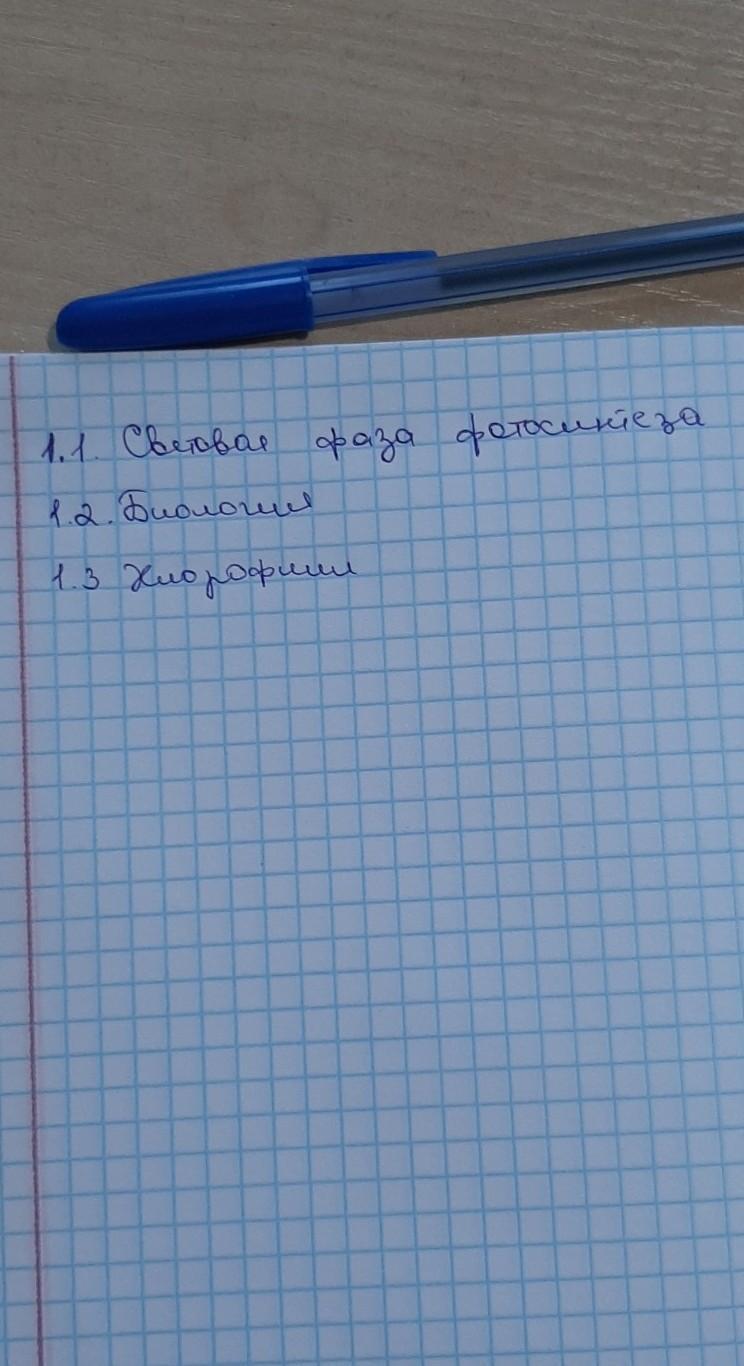 1.1. Световая фаза фотосинтеза
1.2. Биология
1.3 Хлорофилл